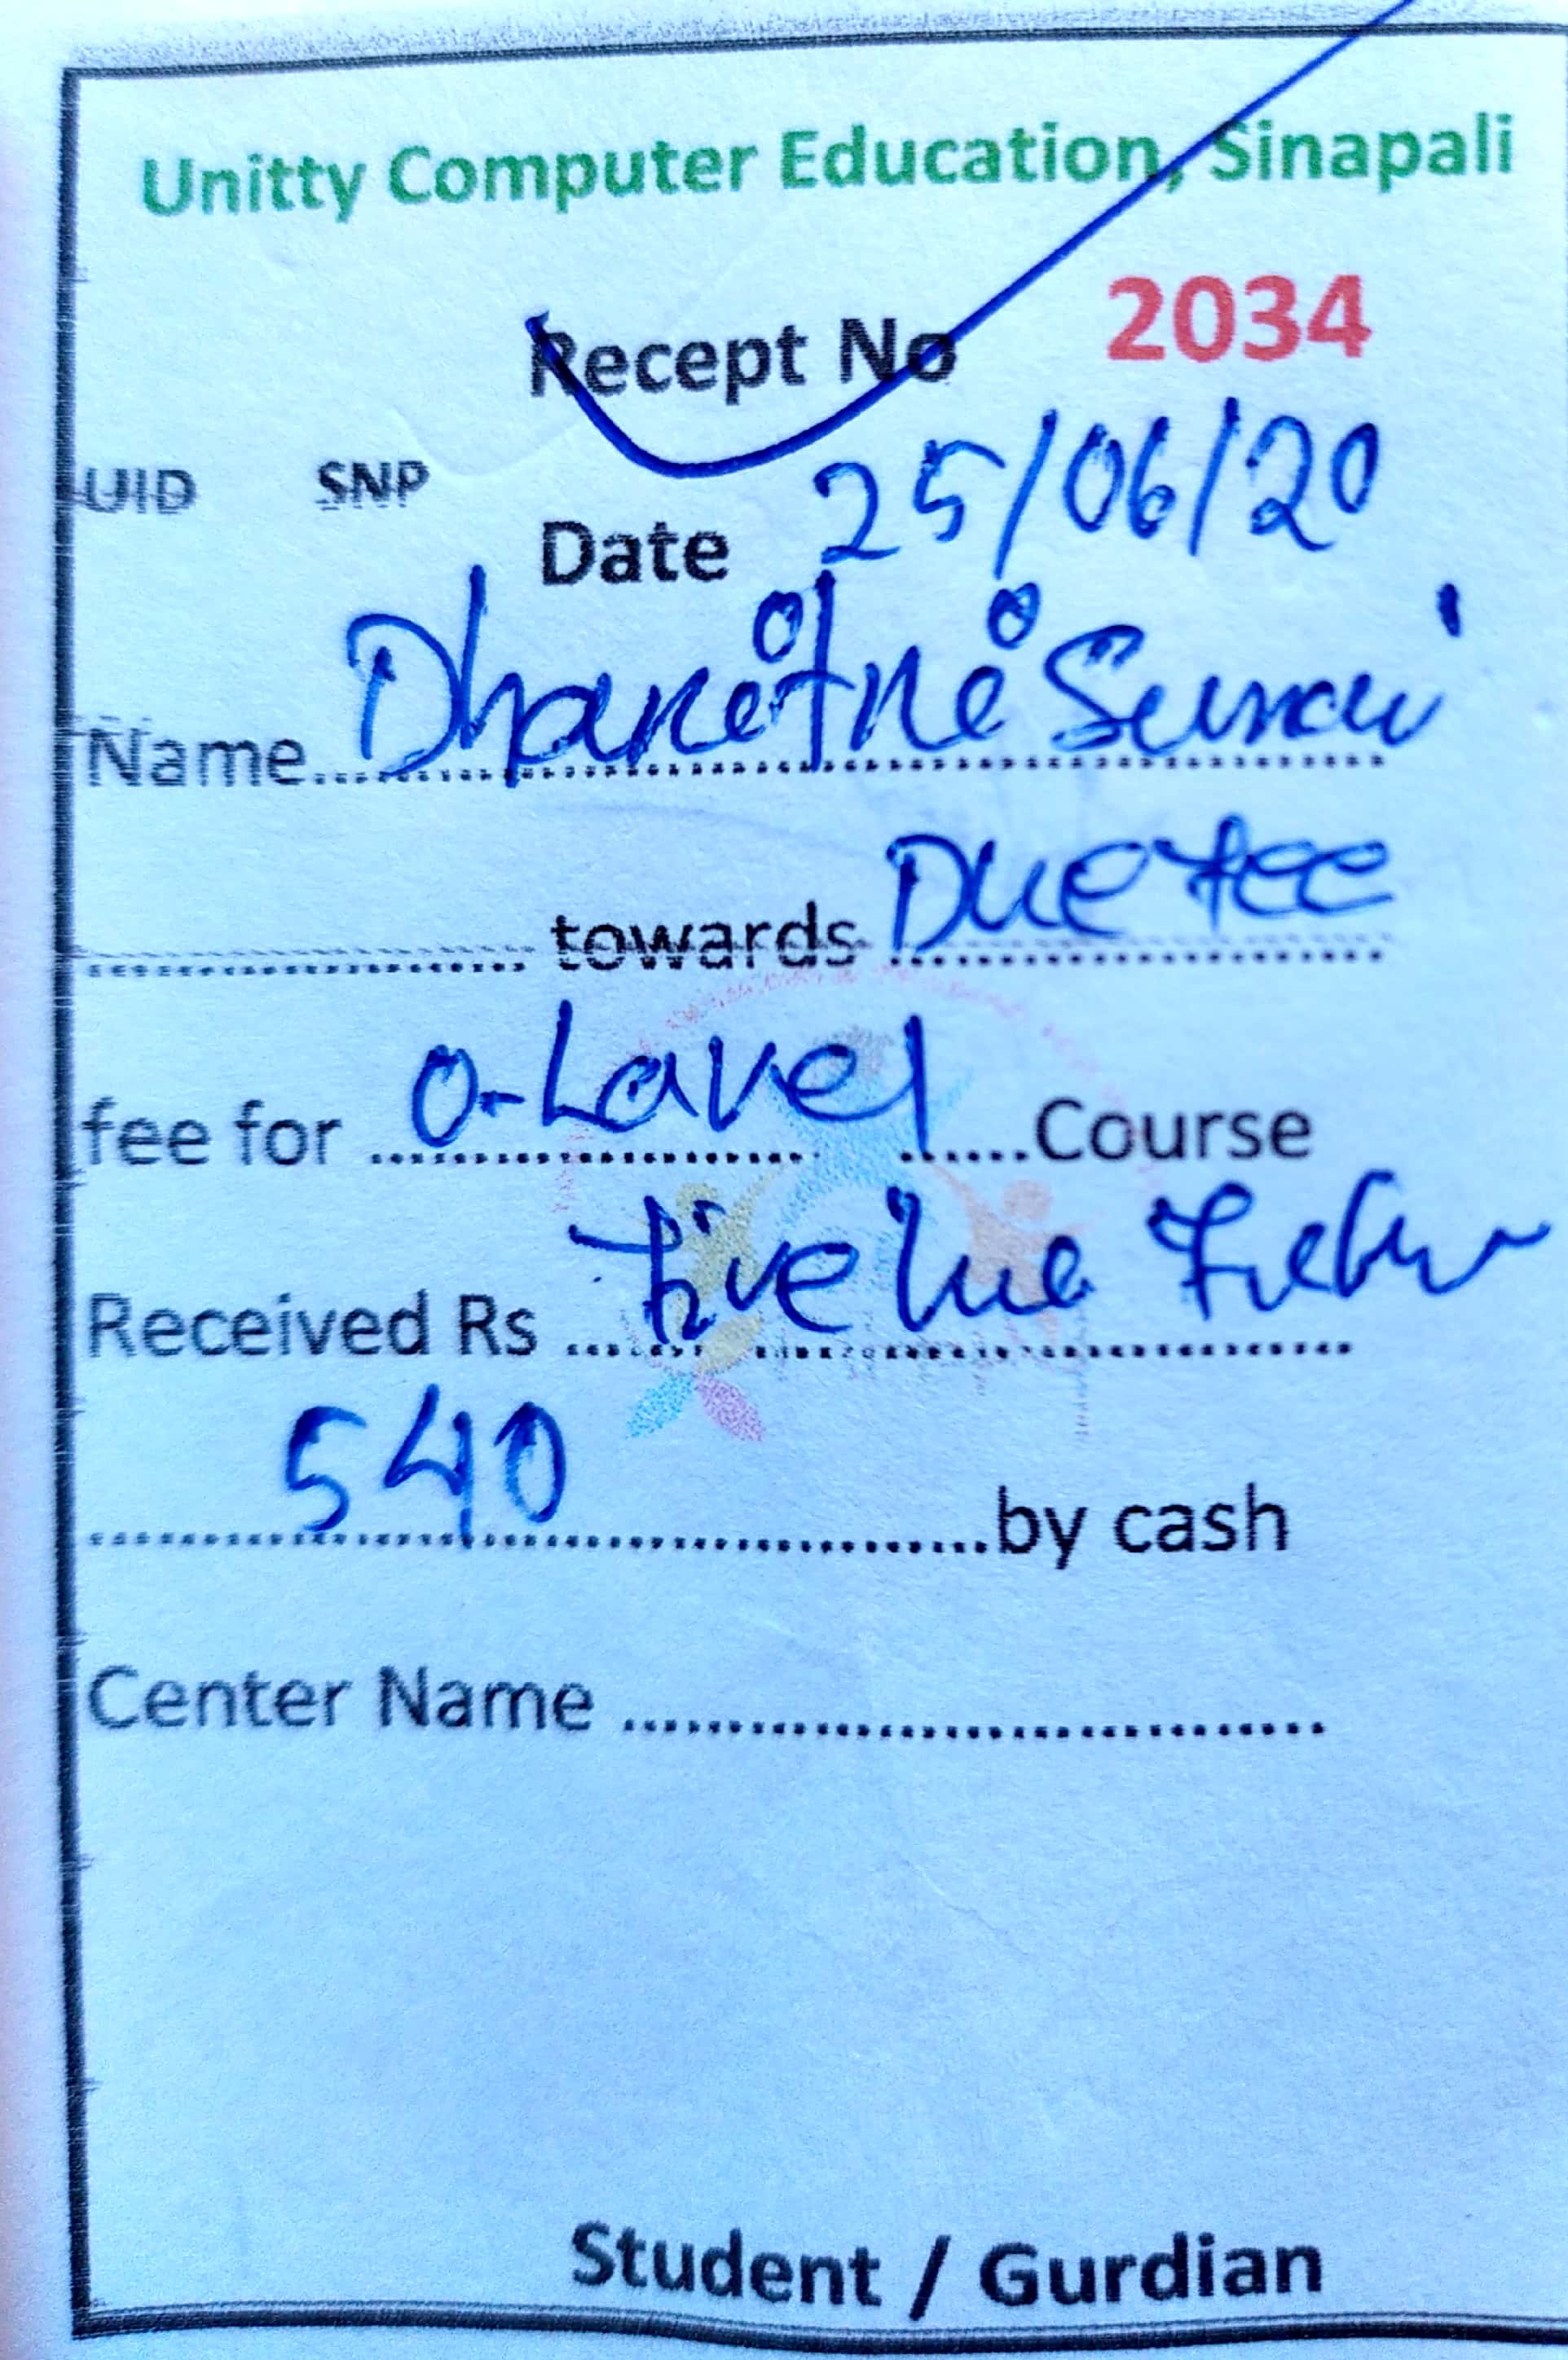 Unitty Computer Education, Sinapali
Recept No 2034
UID SNP
Date 25/06/20
Name.................... 
.................... towards Due fee
fee for O-Lavel ......Course
Received Rs ... five
540 ....................by cash
Center Name ....................
Student / Gurdian